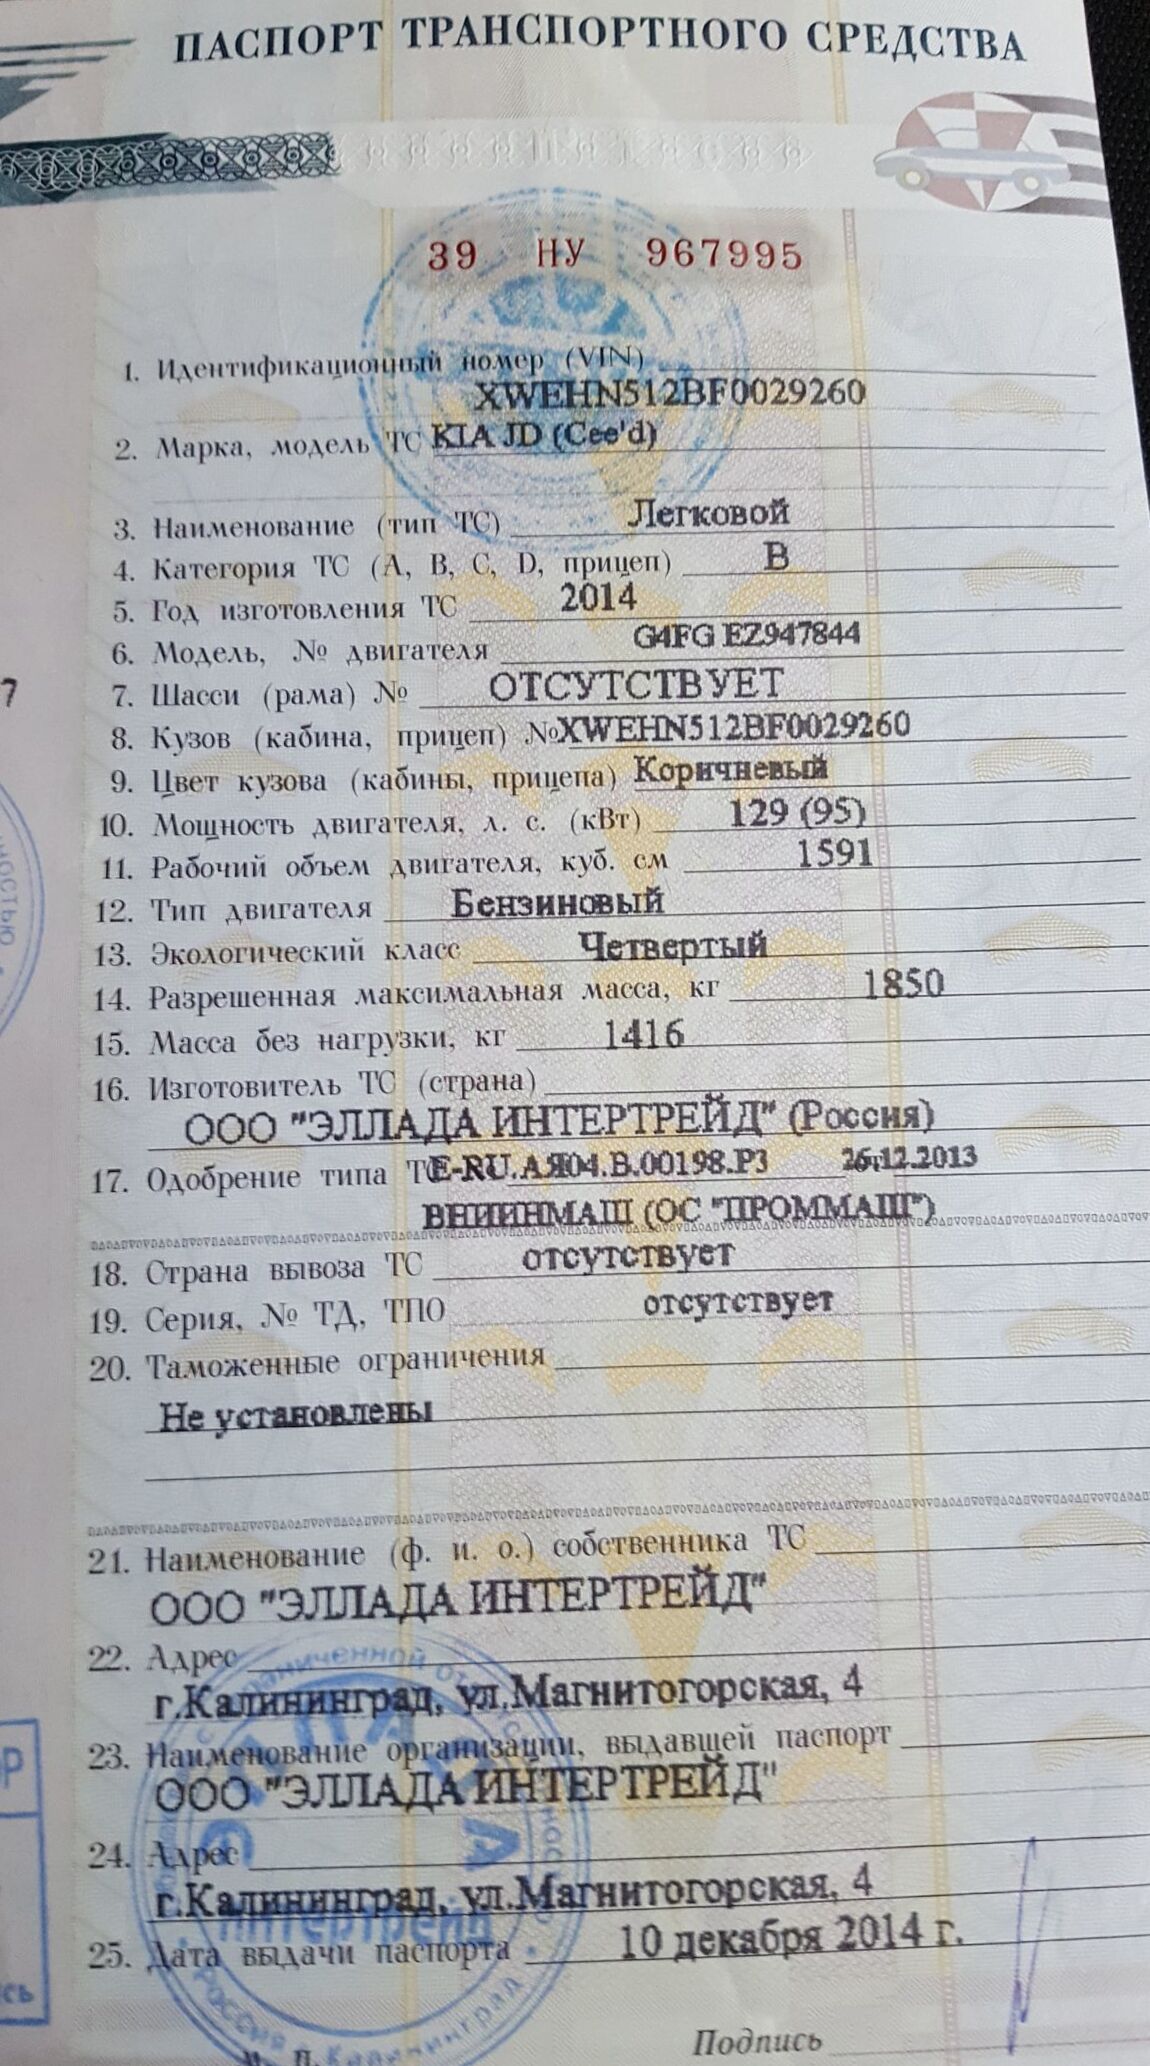 ПАСПОРТ ТРАНСПОРТНОГО СРЕДСТВА
39 НУ 967995
1. Идентификационный номер (VIN)
XWEHN512BF0029260
2. Марка, модель ТС KIA JD (Cee'd)
3. Наименование (тип ТС) Легковой
4. Категория ТС (A, B, C, D, прицеп) B
5. Год изготовления ТС 2014
6. Модель, № двигателя G4FG EZ947844
7. Шасси (рама) № ОТСУТСТВУЕТ
8. Кузов (кабина, прицеп) № XWEHN512BF0029260
9. Цвет кузова (кабины, прицепа) Коричневый
10. Мощность двигателя, л. с. (кВт) 129 (95)
11. Рабочий объем двигателя, куб. см 1591
12. Тип двигателя Бензиновый
13. Экологический класс Четвертый
14. Разрешенная максимальная масса, кг 1850
15. Масса без нагрузки, кг 1416
16. Изготовитель ТС (страна)
ООО "ЭЛЛАДА ИНТЕРТРЕЙД" (Россия)
17. Одобрение типа ТС E-RU.АЯ04.В.00198.Р3 26.12.2013
ВНИИНМАШ (ОС "ПРОММАШ")
18. Страна вывоза ТС отсутствует
19. Серия, № ТД, ТПО отсутствует
20. Таможенные ограничения
Не установлены
21. Наименование (ф. и. о.) собственника ТС
ООО "ЭЛЛАДА ИНТЕРТРЕЙД"
22. Адрес
г.Калининград, ул.Магнитогорская, 4
23. Наименование организации, выдавшей паспорт
ООО "ЭЛЛАДА ИНТЕРТРЕЙД"
24. Адрес
г.Калининград, ул.Магнитогорская, 4
25. Дата выдачи паспорта 10 декабря 2014 г.
М. П.
Подпись